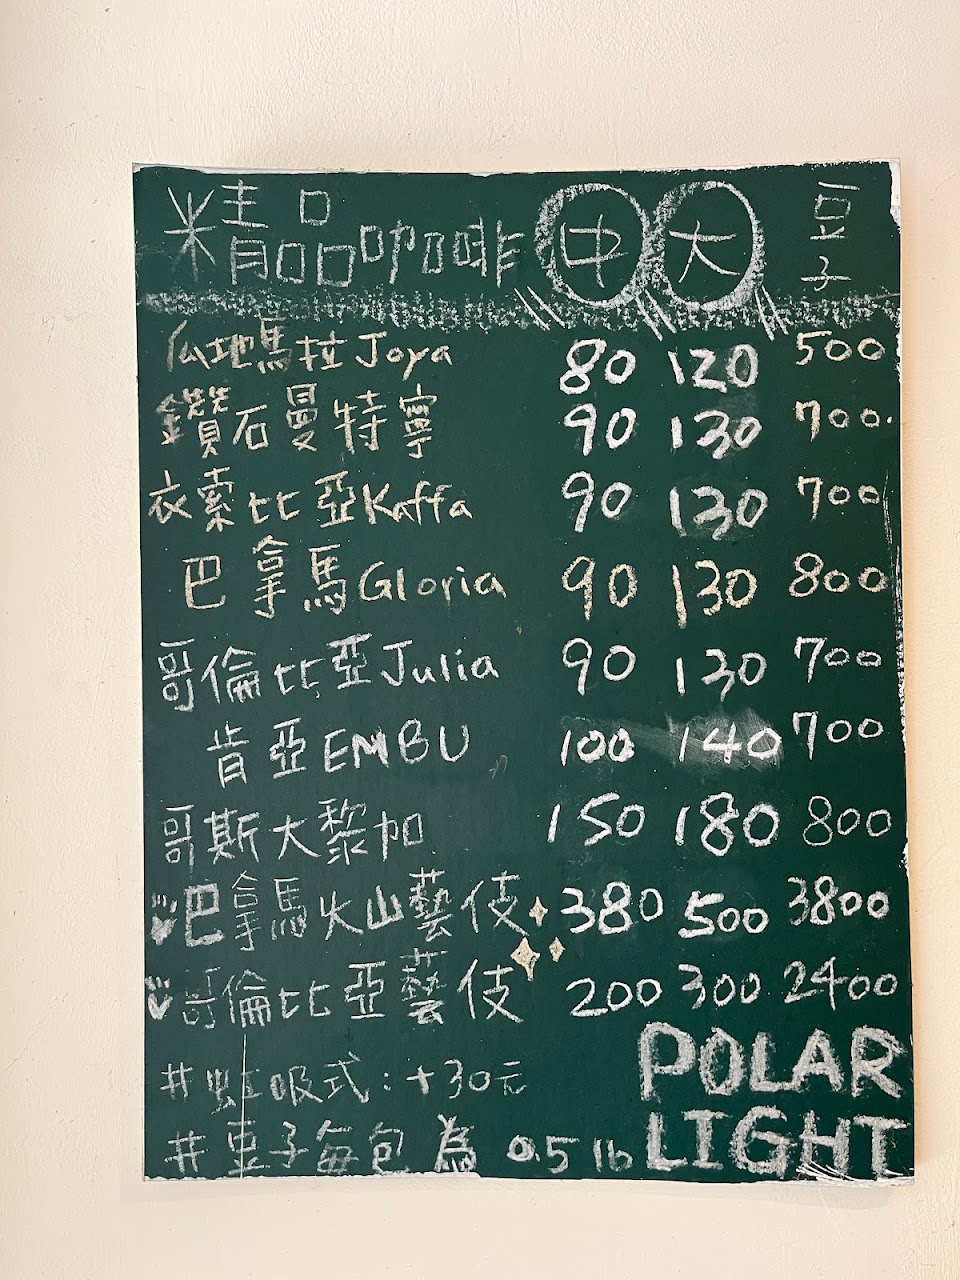 精品咖啡 中 大 豆子
瓜地馬拉Joya 80 120 500
鑽石曼特寧 90 130 700
衣索比亞Kaffa 90 130 700
巴拿馬Gloria 90 130 800
哥倫比亞Julia 90 130 700
肯亞EMBU 100 140 700
哥斯大黎加 150 180 800
巴拿馬火山藝伎 380 500 3800
哥倫比亞藝伎 200 300 2400
#虹吸式:+30元
#豆子每包為 0.5 lb
POLAR
LIGHT